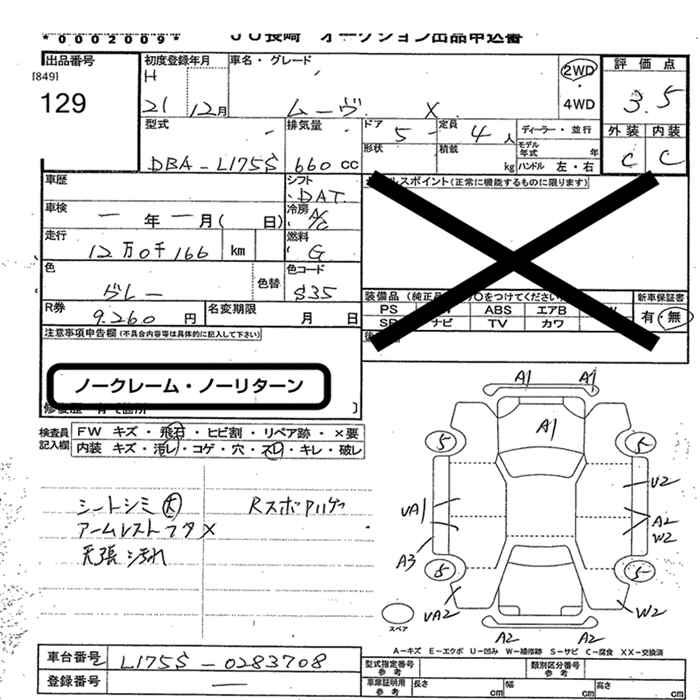 *0002009*
JU長崎 オークション出品申込書
出品番号
[849]
129
初度登録年月
H
21 12月
車名・グレード
ムーヴ X
2WD
・
4WD
評価点
3.5
外装 内装
C C
型式
DBA-L175S
排気量
660 cc
ドア
5
定員
4人
形状
積載
kg
ディーラー・並行
モデル年式 年
ハンドル 左・右
車歴
シフト
DAT
車検
一 年 一 月( 日)
冷房
A/C
走行
12万0千166 km
燃料
G
色
グレー
色替
色コード
S35
R券
9.260 円
名変期限
月 日
ルスポイント(正常に機能するものに限ります)
装備品(純正品 ○をつけてください
PS ABS エアB
ナビ TV カワ
新車保証書
有・無
注意事項申告欄(不具合内容等は具体的に記入して下さい)
ノークレーム・ノーリターン
検査員
記入欄
FW キズ・飛石・ヒビ割・リペア跡・×要
内装 キズ・汚レ・コゲ・穴・スレ・キレ・破レ
シートシミ大
Rスポアハゲ
アームレストフタX
天張汚れ
A1 A1
A1
5 5
UA1
U2
A2
W2
A3
5 5
UA2
W2
スペア
A2 A2
A-キズ E-エクボ U-凹み W-補修跡 S-サビ C-腐食 XX-交換済
車台番号
L175S-0283708
登録番号
—
型式指定番号
参考
類別区分番号
参考
車庫証明用
参考
長さ cm
幅 cm
高さ cm